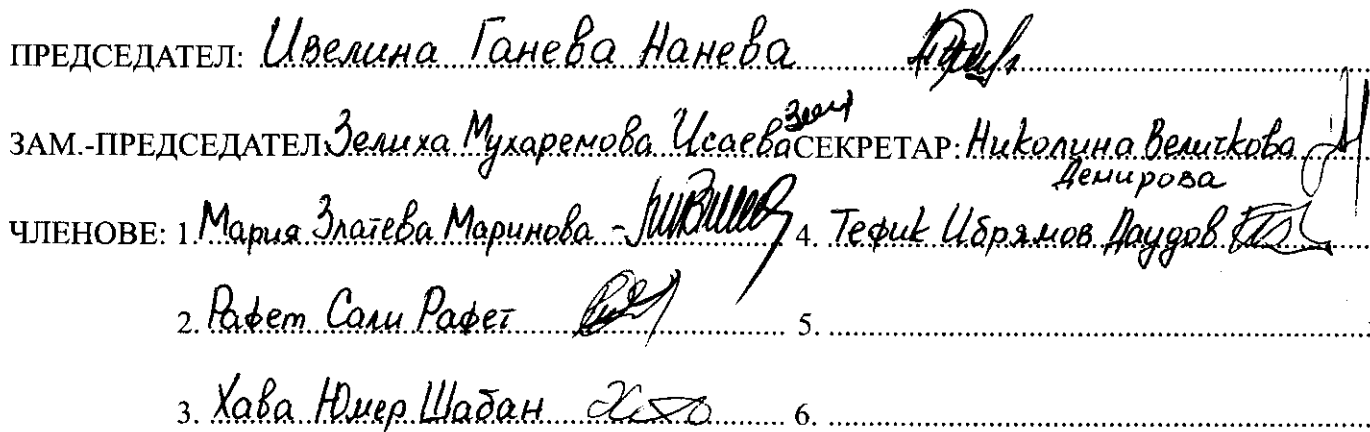 ПРЕДСЕДАТЕЛ: Ивелина Ганева Нанева
ЗАМ.-ПРЕДСЕДАТЕЛ: Зелиха Мухаремова Исаева СЕКРЕТАР: Николина Величкова
Демирова
ЧЛЕНОВЕ: 1. Мария Златева Маринова - 4. Тефик Ибрямов Даудов
2. Рафет Сали Рафет 5.
3. Хава Юмер Шабан 6.